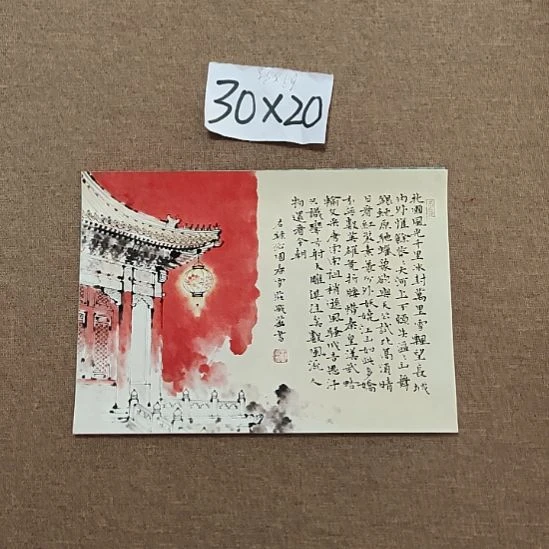 30×20
北國風光千里冰封萬里雪飄望長城
内外惟餘莽〻大河上下頓失滔〻山舞
銀蛇原馳蠟象欲與天公試比高須晴
日看紅裝素裹分外妖嬈江山如此多嬌
引無數英雄競折腰惜秦皇漢武略
輸文采唐宗宋祖稍遜風騷成吉思汗
只識彎弓射大雕俱往矣數風流人
物還看今朝
右錄沁園春雪 書